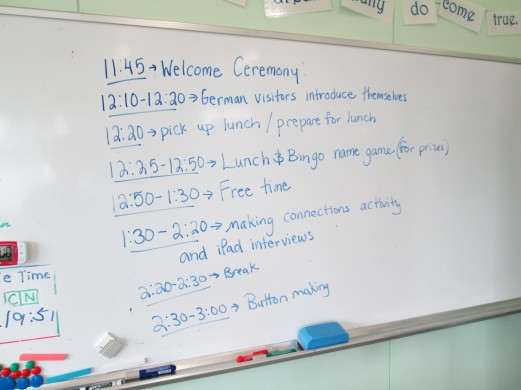 do
come
true.
11:45 → Welcome Ceremony
12:10-12:20 → German visitors introduce themselves
12:20 → pick up lunch / prepare for lunch
12:25-12:50 → Lunch & Bingo name game (for prizes)
12:50-1:30 → Free time
1:30-2:20 → making connections activity
and iPad interviews
2:20-2:30 → Break
2:30-3:00 → Button making
e Time
CN
19:51